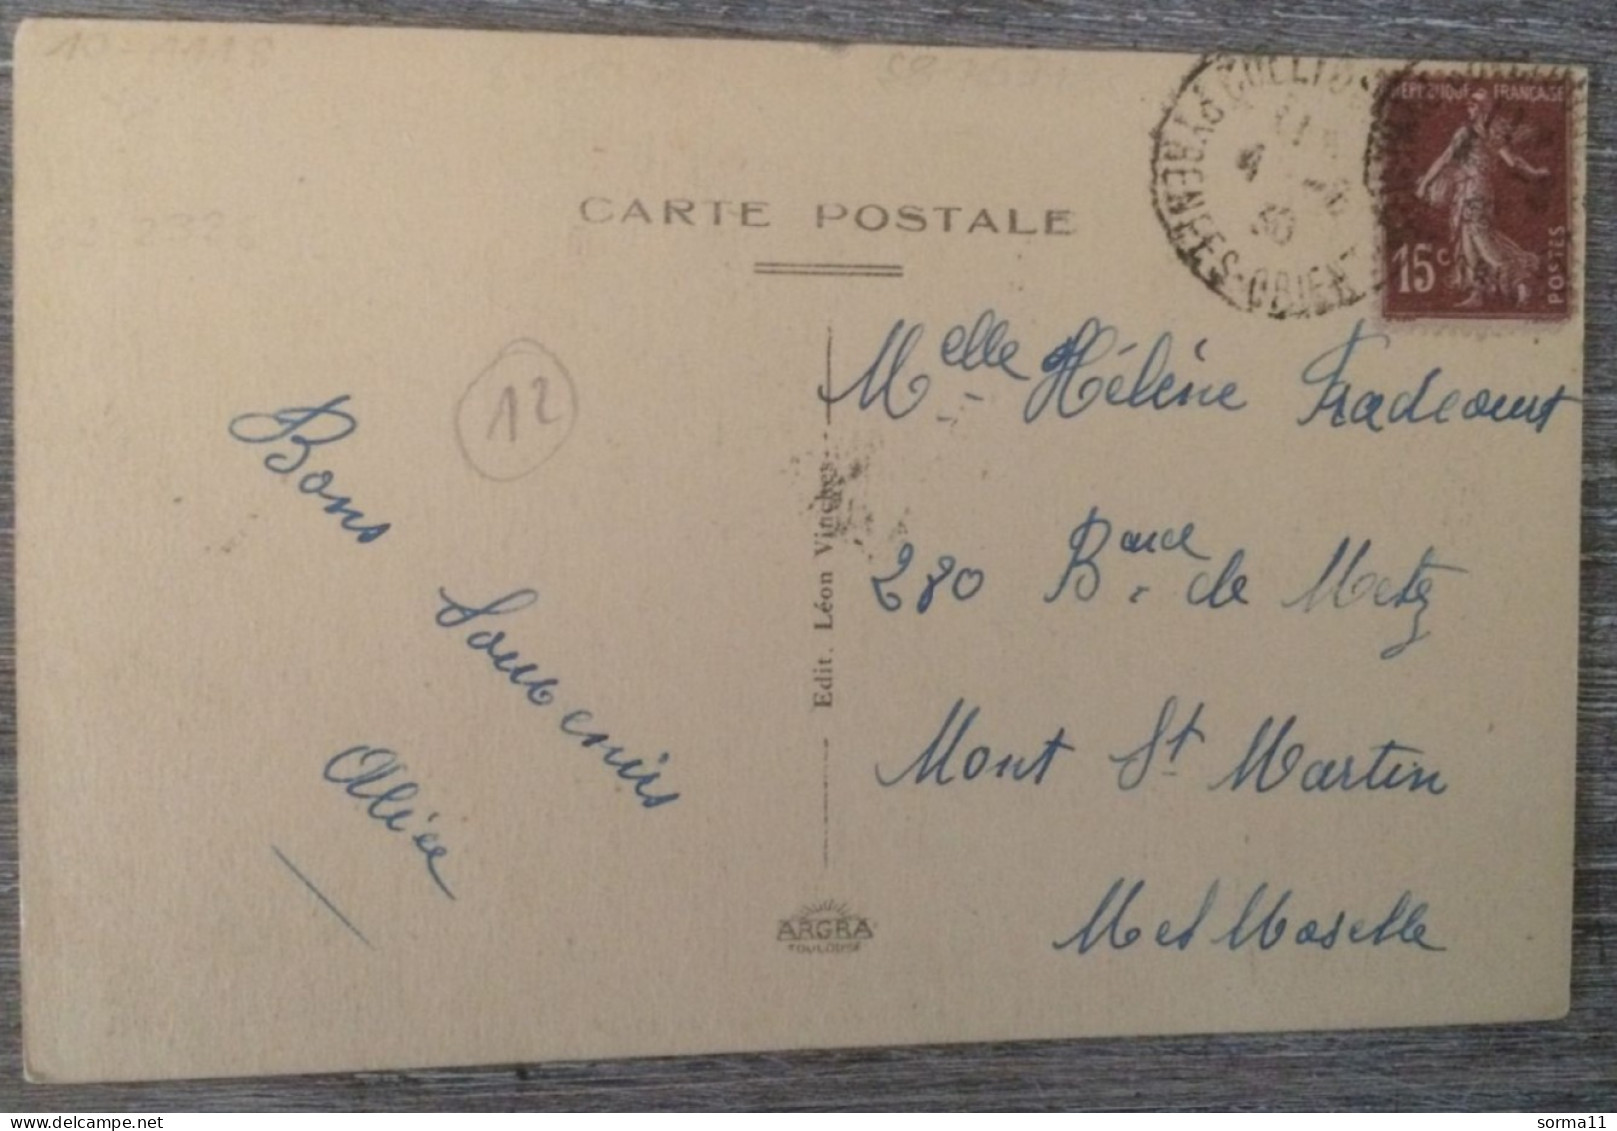 10-1118
CARTE POSTALE
RÉPUBLIQUE FRANÇAISE
15c
POSTES
PYRÉNÉES-ORIENT
12
Melle Hélène Fradcourt
280 Bard de Metz
Mont St Martin
Met Moselle
Bons
Souvenirs
Alice
Edit. Léon Vinches
ARGRA
TOULOUSE
sorma11